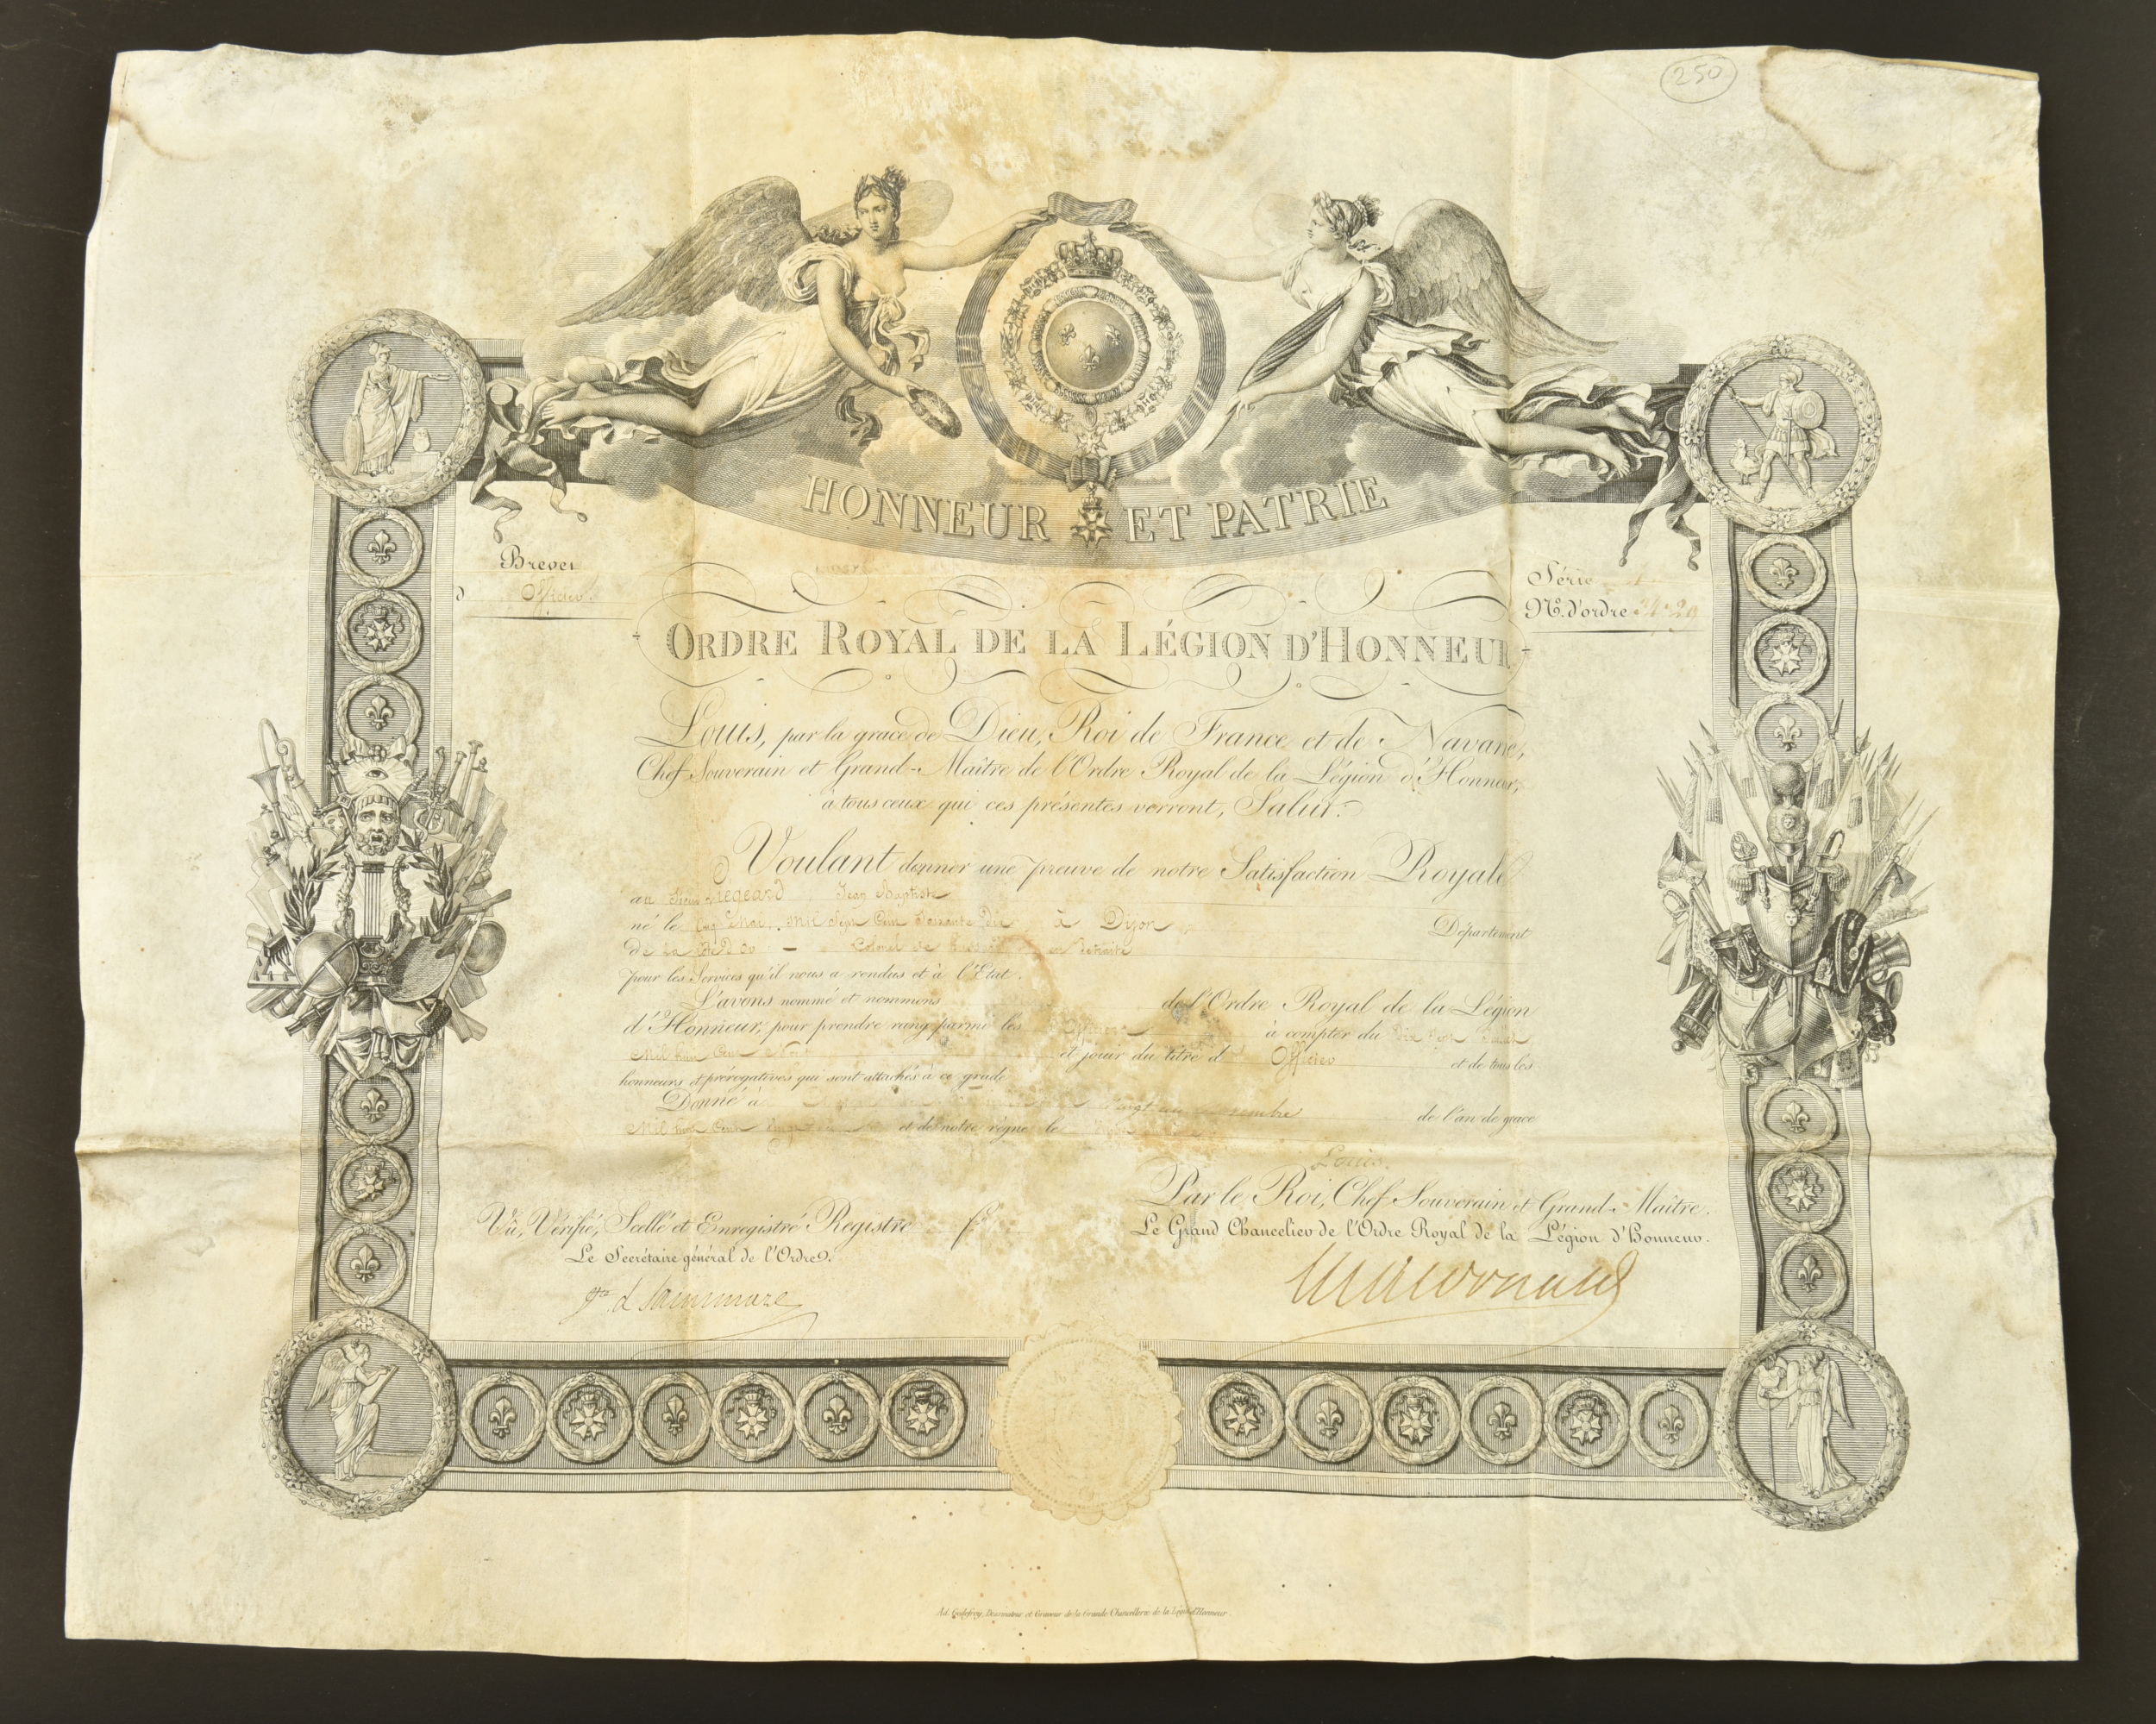 250
HONNEUR ET PATRIE
Brevet
d Officier
Série
No. d'ordre
ORDRE ROYAL DE LA LÉGION D'HONNEUR
Louis, par la grace de Dieu, Roi de France et de Navarre,
Chef Souverain et Grand-Maître de l'Ordre Royal de la Légion d'Honneur,
à tous ceux qui ces présentes verront, Salut.
Voulant donner une preuve de notre Satisfaction Royale
au Sieur Legeard Jean Baptiste
né le Cinq Mai Mil Sept Cent Soixante Dix à Dijon Département
de la Côte d'Or Colonel de en retraite
pour les Services qu'il nous a rendus et à l'Etat.
L'avons nommé et nommons de l'Ordre Royal de la Légion
d'Honneur, pour prendre rang parmi les Officiers à compter du Dix Sept Juillet
Mil huit Cent et jouir du titre d Officier et de tous les
honneurs et prérogatives qui sont attachés à ce grade
Donné à Vingt de l'an de grace
Mil huit Cent et de notre règne le
Louis.
Par le Roi, Chef Souverain et Grand-Maître.
Vu, Vérifié, Scellé et Enregistré Registre fo.
Le Grand Chancelier de l'Ordre Royal de la Légion d'Honneur.
Le Secrétaire général de l'Ordre.
Macdonald
Ad. Godefroy, Dessinateur et Graveur de la Grande Chancellerie de la Légion d'Honneur